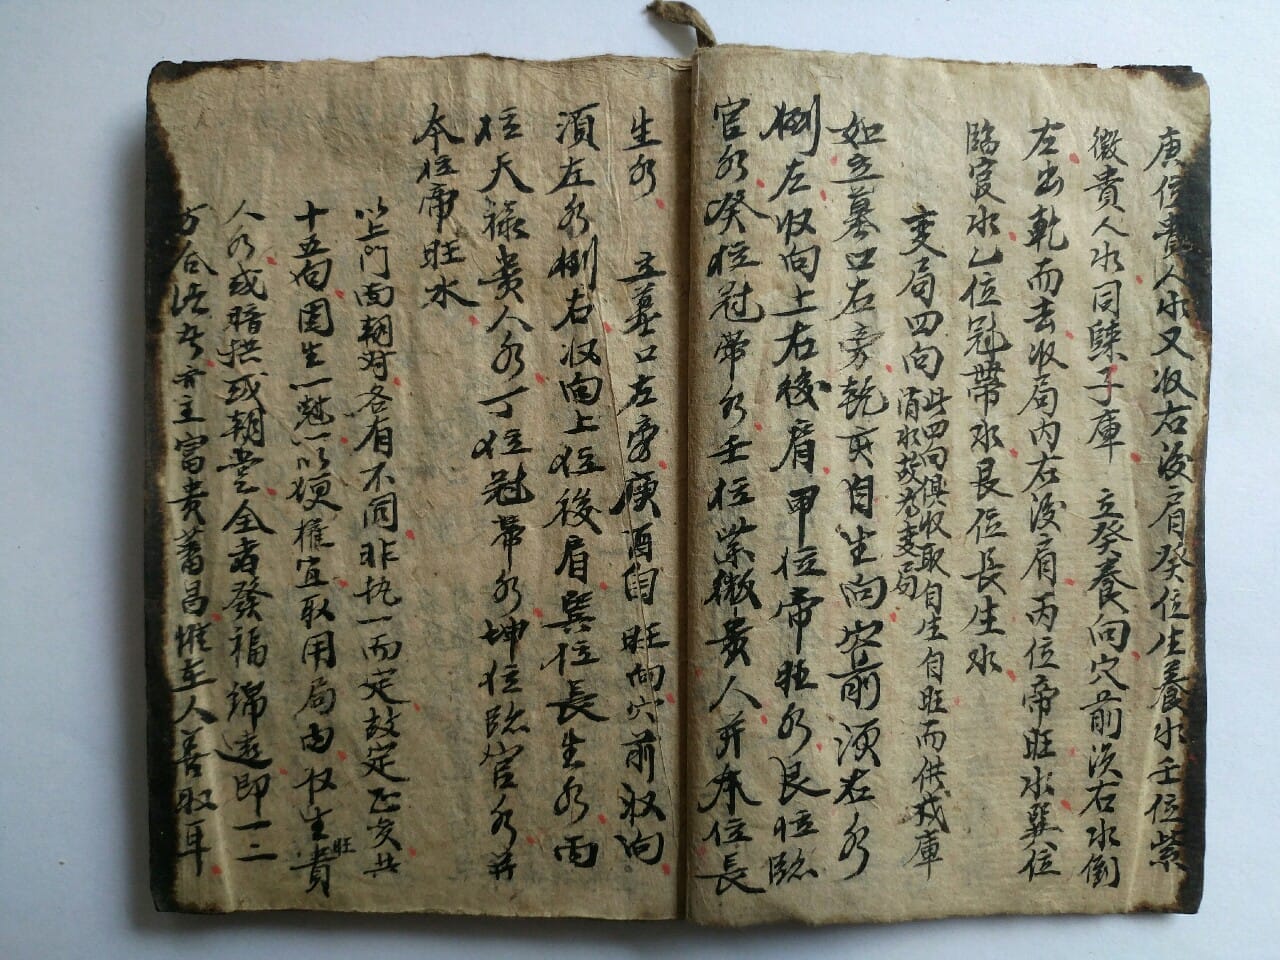 庚位貴人水又収右後肩癸位生養水壬位紫
微貴人水同歸子庫　立癸養向穴前須右水倒
左出乾而去収局内在後肩丙位帝旺水巽位
臨官水乙位冠帶水艮位長生水
變局四向此四向俱収取自生自旺而供戎庫
消水故為變局
如立墓口右旁乾亥自生向穴前須右水
倒左収向上右後肩甲位帝旺水艮位臨
官水癸位冠帶水壬位紫微貴人并本位長
生水　立墓口左旁庚酉自旺向穴前収向
須左水倒右収向上位後肩巽位長生水丙
位天祿貴人水丁位冠帶水坤位臨官水并
本位帝旺水
以上門向朝對各有不同非执一而定故定正亥共
十五向圖生一尅一以便權宜取用局向収生旺貴
人水或暗拱或朝堂全者發福綿遠即一二
方合法者亦主富貴蕃昌惟在人善取耳